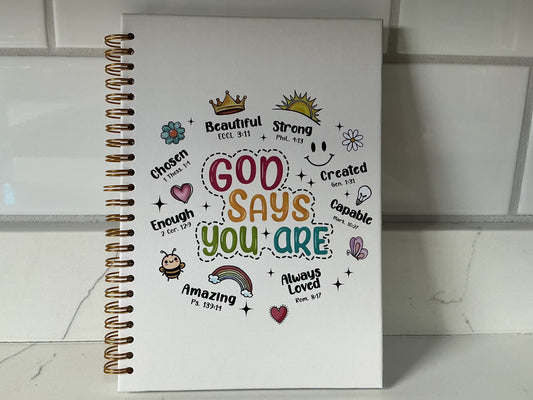 Beautiful
ECCL 3:11
Strong
Phil. 4:13
Chosen
1 Thess. 1:4
Created
Gen. 1:31
Enough
2 Cor. 12:9
Capable
Mark. 10:27
GOD
SAYS
YOU ARE
Amazing
Ps. 139:14
Always
Loved
Rom. 8:17